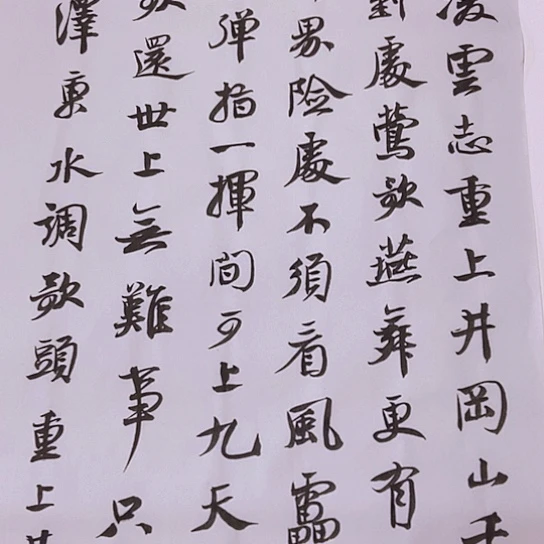 凌雲志重上井岡山千
到處鶯歌燕舞更有
界险處不須看風雷
彈指一揮間可上九天
歌還世上無難事只
澤東水調歌頭重上井